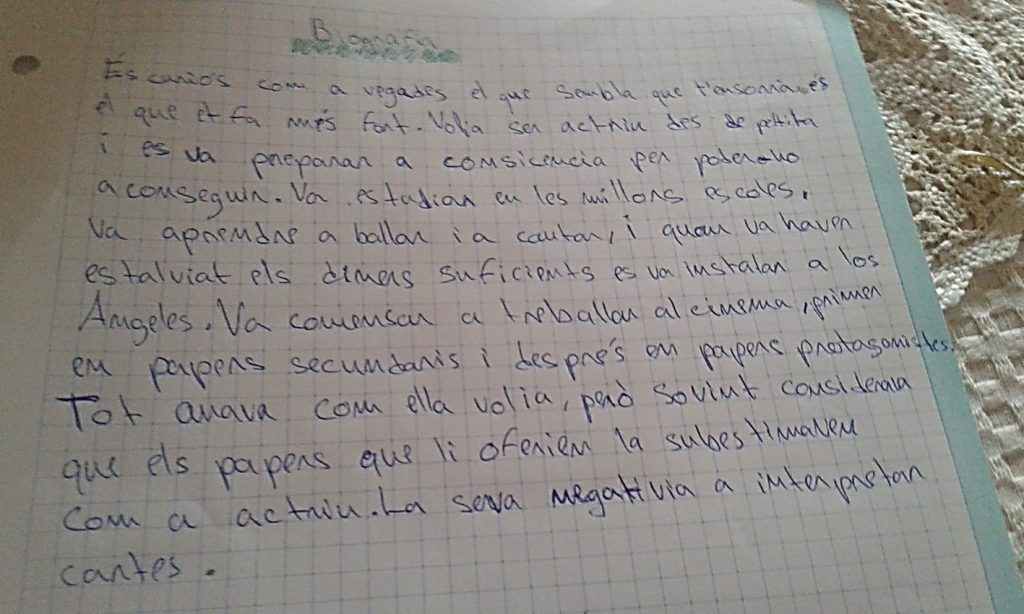 Biografia
És curiós com a vegades el que sembla que t'ensorra és
el que et fa més fort. Volia ser actriu des de petita
i es va preparar a consicencia per poder-ho
aconseguir. Va estudiar en les millors escoles.
Va aprendre a ballar i a cantar, i quan va haver
estalviat els diners suficients es va instalar a los
Angeles. Va comensar a treballar al cinema, primer
en papers secundaris i després en papers protagonistes.
Tot anava com ella volia, però sovint considerava
que els papers que li oferien la subestimaven
com a actriu. La seva negativia a interpretar
cartes.